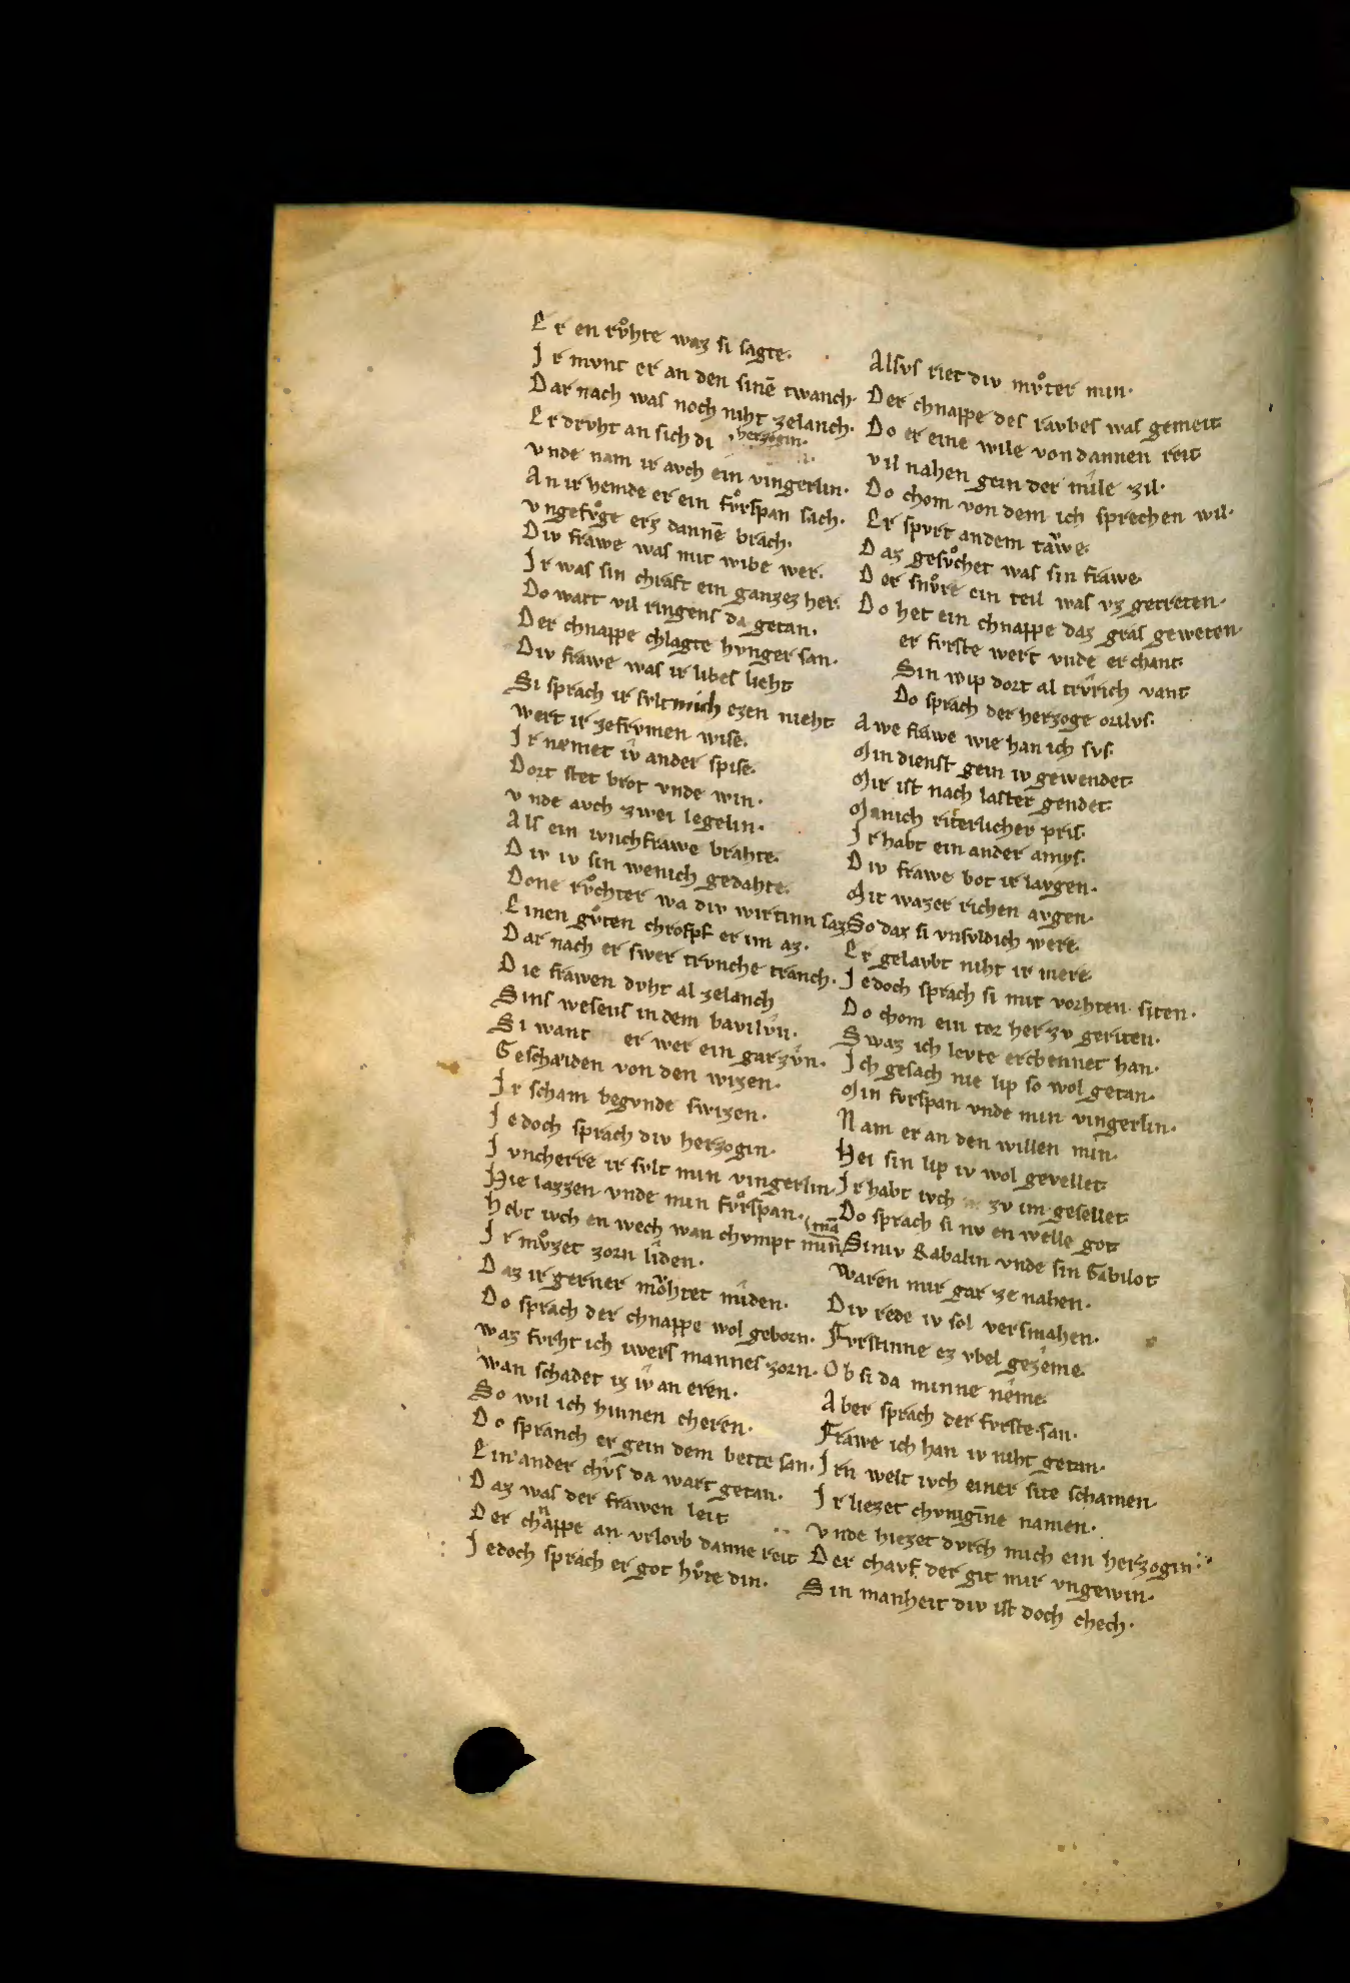 Er en rvͦhte waz si sagte·
Ir mvnt er an den sinē twanch·
Dar nach was noch niht zelanch·
Er drvht an sich di herzogin·
vnde nam ir avch ein vingerlin·
An ir hemde er ein fvͦrspan sach·
vngefvͦge erz dannē brach·
Div frawe was mit wibe wer·
Ir was sin chraft ein ganzez her·
Do wart vil ringens da getan·
Der chnappe chlagte hvnger san·
Div frawe was ir libes lieht
Si sprach ir svlt mich ezen nieht
wert ir zefrvmen wise·
Ir næmet iv ander spise·
Dort stet brot vnde win·
vnde avch zwei legelin·
Als ein ivnchfrawe brahte·
Div iv sin wenich gedahte·
Done rvͦchter wa div wirtinn saz
Einen gvͦten chropf er im az·
Dar nach er swer trvnche tranch·
Die frawen dvht al zelanch
Sins wesens in dem bavilvn·
Si want er wer ein garzvn·
Geschaiden von den wizen·
Ir scham begvnde swizen·
Iedoch sprach div herzogin·
Ivncherre ir svlt min vingerlin·
Hie lazzen vnde min fvͦrspan·
hebt ivch en wech wan chvmpt min mā
Ir mvͦzet zorn liden·
Daz ir gerner moͤhtet miden·
Do sprach der chnappe wol geborn·
waz fvrht ich iwers mannes zorn·
wan schadet iz iv an eren·
So wil ich hinnen cheren·
Do spranch er gein dem bette san·
Ein ander chvs da wart getan·
Daz was der frawen leit
Der chnappe an vrlovb danne reit
Iedoch sprach er got hvͦte din·
Alsvs riet div mvͦter min·
Der chnappe des ravbes was gemeit
Do er eine wile von dannen reit
vil nahen gein der mile zil·
Do chom von dem ich sprechen wil·
Er spvrt an dem tawe·
Daz gesvͦchet was sin frawe·
Der snvͦre ein teil was vz getreten·
Do het ein chnappe daz gras geweten·
er fvrste wert vnde erchant
Sin wip dort al trvrich vant
Do sprach der herzoge orilvs·
Awe frawe wie han ich svs·
Min dienst gein iv gewendet
Mir ist nach laster gendet
Manich riterlicher pris·
Ir habt ein ander amys·
Div frawe bot ir lavgen·
Mit wazer richen avgen·
So daz si vnsvldich were·
Er gelavbt niht ir mere·
Iedoch sprach si mit vorhten siten·
Do chom ein tor her zv geriten·
Swaz ich levte erchennet han·
Ich gesach nie lip so wol getan·
Min fvrspan vnde min vingerlin·
Nam er an den willen min·
Hei sin lip iv wol gevellet
Ir habt ivch zv im gesellet
Do sprach si nv en welle got
Siniv Rabalin vnde sin Gabilot
waren mir gar ze nahen·
Div rede iv sol versmahen·
Fvrstinne ez vbel gezeme·
Ob si da minne neme·
Aber sprach der fvrste san·
Frawe ich han iv niht getan·
Irn welt ivch einer site schamen·
Ir liezet chvnigīne namen·
vnde hiezet dvrch mich ein herzogin·
Der chavf der git mir vngewin·
Sin manheit div ist doch chech·